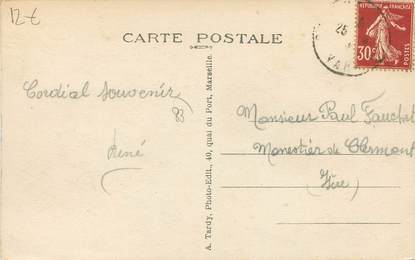 12€
CARTE POSTALE
REPUBLIQUE FRANÇAISE
30c
POSTES
25
VAR
Cordial Souvenir
René
A. Tardy, Photo-Edit., 40, quai du Port, Marseille.
Monsieur Paul
Monestier de Clermont
(Isère)